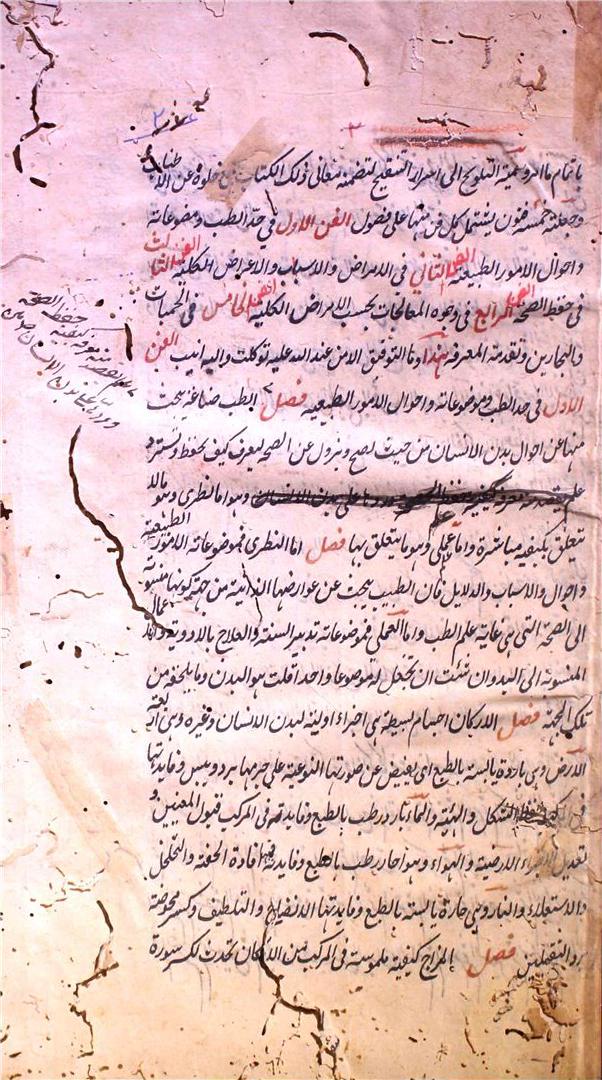 باتمام ما امر وسميته التلويح الى اسرار التنقيح لتضمنه معانى ذلك الكتاب مع خلوه عن الاطناب
وجعلته خمسة فنون يشتمل كل فن منها على فصول الفن الاول فى حد الطب وموضوعاته
واحوال الامور الطبيعية الفن الثانى فى الامراض والاسباب والاعراض الكلية الفن الثالث
فى حفظ الصحة الفن الرابع فى وجوه المعالجات بحسب الامراض الكلية الفن الخامس فى الحميات
والبحارين وتقدمة المعرفة هذا وما التوفيق الا من عند الله عليه توكلت واليه انيب الفن
الاول فى حد الطب وموضوعاته واحوال الامور الطبيعية فصل الطب صناعة يبحث
منها عن احوال بدن الانسان من حيث يصح ويزول عن الصحة ليعرف كيف تحفظ وتسترد
علم وهو اما نظرى وهو مالا
يتعلق بكيفية مباشرة واما عملى وهو ما يتعلق بها فصل اما النظرى فموضوعاته الامور الطبيعية
واحوال والاسباب والدلايل فان الطبيب يبحث عن عوارضها الذاتية من جهة كونها منسوبة
الى الصحة التى هى غاية علم الطب واما العملى فموضوعاته تدبير الستة والعلاج بالادوية واعمال
المنسوبة الى اليد وان شئت ان تجعل له موضوعا واحدا قلت هو البدن وما يلحقه من
تلك الجهة فصل الاركان اجسام بسيطة هى اجزاء اولية لبدن الانسان وغيره وهى اربعة
الارض وهى باردة يابسة بالطبع اى يفيض عن صورتها النوعية على جرمها برد ويبس وفايدتها
فى الشكل والهيئة والماء بارد رطب بالطبع وفايدته فى المركب قبول المعنيين و
تعديل الاجزاء الارضية والهواء وهو حار رطب بالطبع وفايدته افادة الخفة والتخلخل
والاستعلاء والنار وهى حارة يابسة بالطبع وفايدتها الانضاج والتلطيف وكسر محوضة
برد الثقيلين فصل المزاج كيفية ملموسة فى المركب من الاركان تحدث لكسر سورة